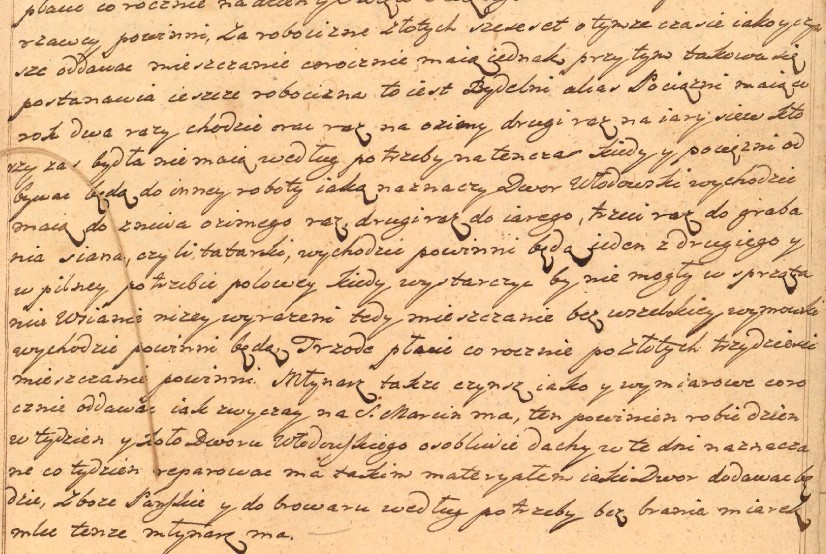 płacic co rocznie na dzien
rzawcy powinni. Za robocizne Złotych szescset o tymze czasie iako y czyn
sze oddawac mieszczanie corocznie maią iednak przy tym takowa się
postanawia ieszcze robocizna to iest Bydelni alias Pociązni maią w
rok dwa razy chodzic oraz raz na ozimy drugi raz na iary siew kto
rzy zas bydła nie maią według potrzeby na tenczas kiedy y pocięzni od
bywac będą do inney roboty iaką naznaczy Dwor Włodowski wychodzic
maią do zniwa ozimego raz, drugi raz do iarego, trzeci raz do graba
nia siana, czyli tatarki, wychodzic powinni będą ieden z drugiego y
w pilney potrzebie polowey kiedy wystarczyc by nie mogły w sprząta
nie Wsianie nizey wyrazeni tedy mieszczanie bez wszelkiey wymowki
wychodzic powinni będą. Trzode płacic co rocznie po Złotych trzydziesci
mieszczanie powinni. Młynarz takze czynsz iako y wymiarowe coro
cznie oddawac iak zwyczay na S. Marcin ma, ten powinien robic dzien
w tydzien y koło Dworu Włodowskiego osobliwie dachy w te dni naznacza
ne co tydzien reparowac ma takim materyałem iaki Dwor dodawac bę
dzie, Zboze Panskie y do browaru według potrzeby bez brania miarek
mlec tenze młynarz ma.